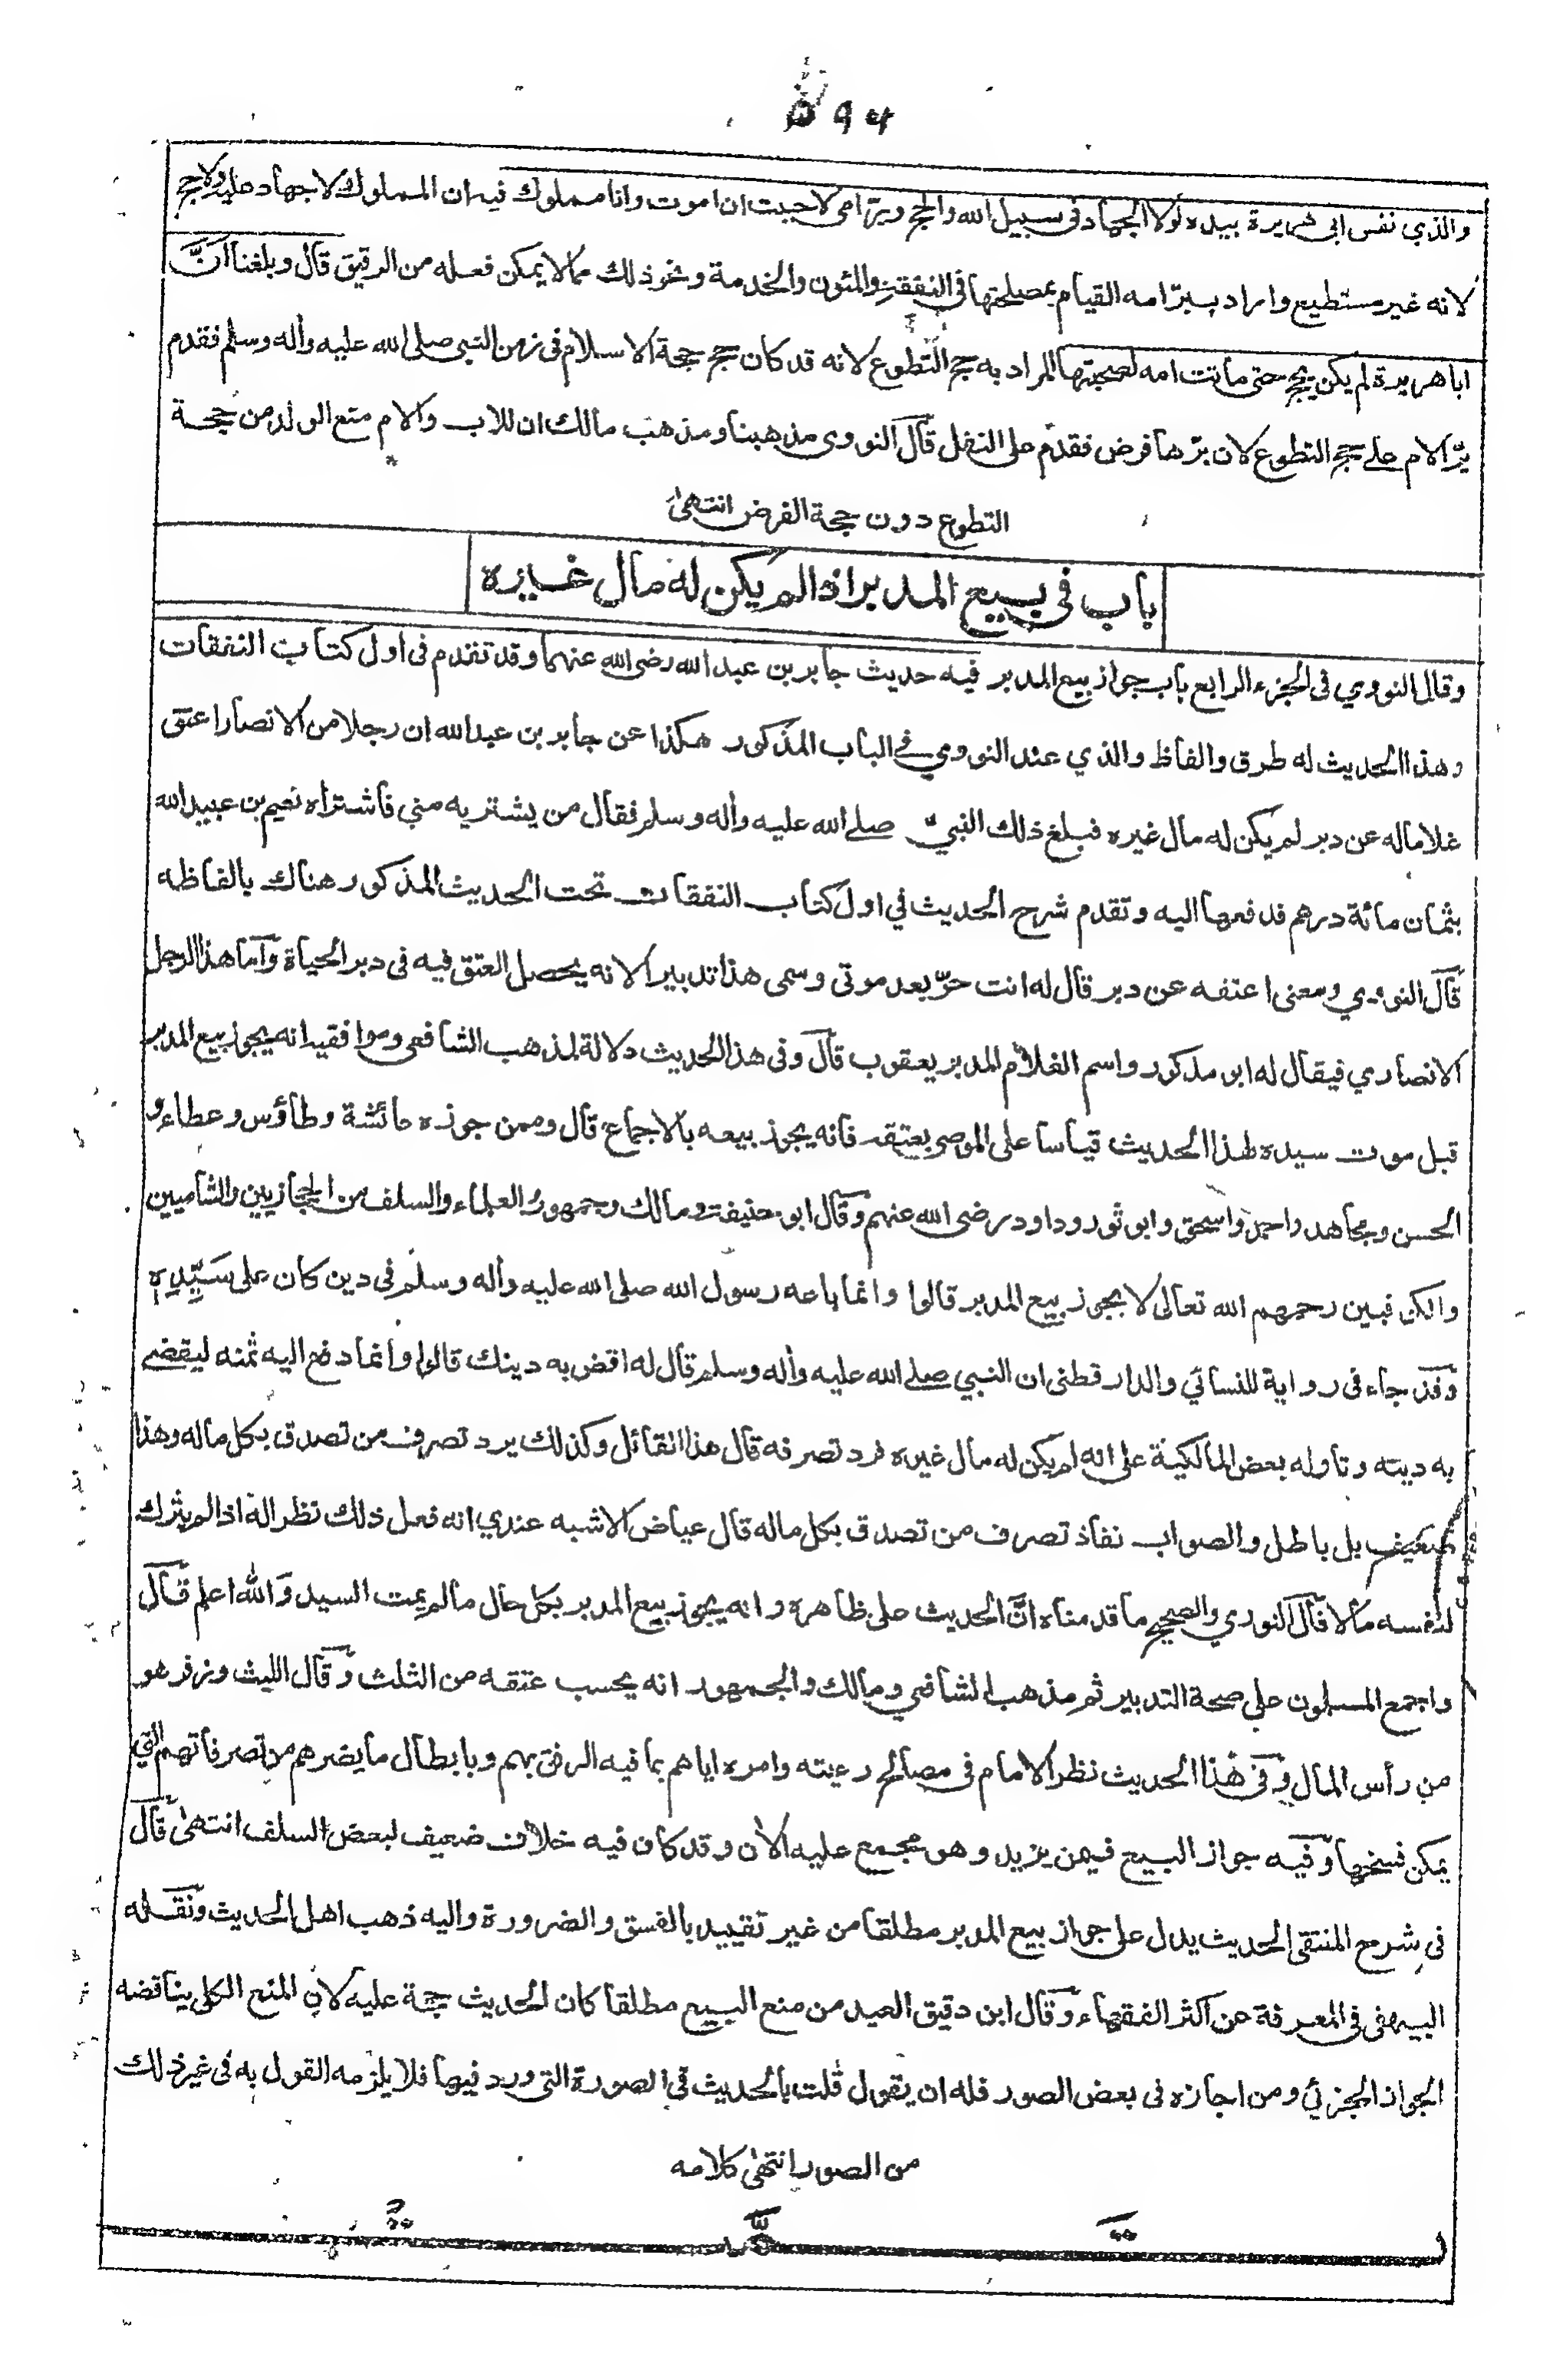 ۵۹۴
والذي نفس ابي هريرة بيده لولا الجهاد في سبيل الله والحج وبرّ امي لاحببت ان اموت وانا مملوك فيه ان المملوك لا جهاد عليه ولا حج
لانه غير مستطيع واراد ببرّ امه القيام بمصلحتها في النفقة والمئون والخدمة ونحو ذلك مما لا يمكن فعله من الرقيق قال وبلغنا انَّ
ابا هريرة لم يكن يحج حتى ماتت امه لصحبتها المراد به حج التطوع لانه قد كان حج حجة الاسلام في زمن النبي صلى الله عليه وأله وسلم فقدم
برّ الام على حج التطوع لان برّها فرض فقدم على النفل قال النووي مذهبنا ومذهب مالك ان للاب والام منع الولد من حجة
التطوع دون حجة الفرض انتهى
باب في بيع المدبر اذا لم يكن له مال غيره
وقال النووي في الجزء الرابع باب جواز بيع المدبر فيه حديث جابر بن عبد الله رضى الله عنهما وقد تقدم في اول كتاب النفقات
وهذا الحديث له طرق والفاظ والذي عند النووي في الباب المذكور هكذا عن جابر بن عبد الله ان رجلا من الانصار اعتق
غلاما له عن دبر لم يكن له مال غيره فبلغ ذلك النبي صلى الله عليه وأله وسلم فقال من يشتريه مني فاشتراه نعيم بن عبيد الله
بثمان مائة درهم فدفعها اليه وتقدم شرح الحديث في اول كتاب النفقات تحت الحديث المذكور هناك بالفاظه
قال النووي ومعنى اعتقه عن دبر قال له انت حرّ بعد موتى وسمى هذا تدبيرا لانه يحصل العتق فيه في دبر الحياة وأما هذا الرجل
الانصاري فيقال له ابو مذكور واسم الغلام المدبر يعقوب قال وفي هذا الحديث دلالة لمذهب الشافعي وموافقيه انه يجوز بيع المدبر
قبل موت سيده لهذا الحديث قياسا على الموصى بعتقه فانه يجوز بيعه بالاجماع قال وممن جوزه عائشة وطاؤس وعطاء و
الحسن ومجاهد واحمد واسحق وابو ثور وداود رضى الله عنهم وقال ابو حنيفة ومالك وجمهور العلماء والسلف من الحجازيين والشاميين
والكوفيين رحمهم الله تعالى لا يجوز بيع المدبر قالوا وانما باعه رسول الله صلى الله عليه وأله وسلم في دين كان على سَيِّدِهِ
وقد جاء في رواية للنسائي والدارقطني ان النبي صلى الله عليه وأله وسلم قال له اقض به دينك قالوا وانما دفع اليه ثمنه ليقضى
به دينه وتاوله بعض المالكية على انه لم يكن له مال غيره فرد تصرفه قال هذا القائل وكذلك يرد تصرف من تصدق بكل ماله وهذا
ضعيف بل باطل والصواب نفاذ تصرف من تصدق بكل ماله قال عياض الاشبه عندي انه فعل ذلك نظرا له اذا لم يترك
لنفسه مالا قال النووي والصحيح ما قدمناه انَّ الحديث على ظاهره وانه يجوز بيع المدبر بكل حال ما لم يمت السيد والله اعلم قال
واجمع المسلون على صحة التدبير ثم مذهب الشافعي ومالك والجمهور انه يحسب عتقه من الثلث وقال الليث وزفر هو
من رأس المال وفي هذا الحديث نظر الامام في مصالح رعيته وامره اياهم بما فيه الرفق بهم وبابطال ما يضرهم من تصرفاتهم التي
يمكن فسخها وفيه جواز البيع فيمن يزيد وهو مجمع عليه الأن وقد كان فيه خلاف ضعيف لبعض السلف انتهى قال
في شرح المنتقى الحديث يدل على جواز بيع المدبر مطلقا من غير تقييد بالفسق والضرورة واليه ذهب اهل الحديث ونقله
البيهقي في المعرفة عن اكثر الفقهاء وقال ابن دقيق العيد من منع البيع مطلقا كان الحديث حجة عليه لان المنع الكلي يناقضه
الجواز الجزئي ومن اجازه في بعض الصور فله ان يقول قلت بالحديث في الصورة التي ورد فيها فلا يلزمه القول به في غير ذلك
من الصور انتهى كلامه